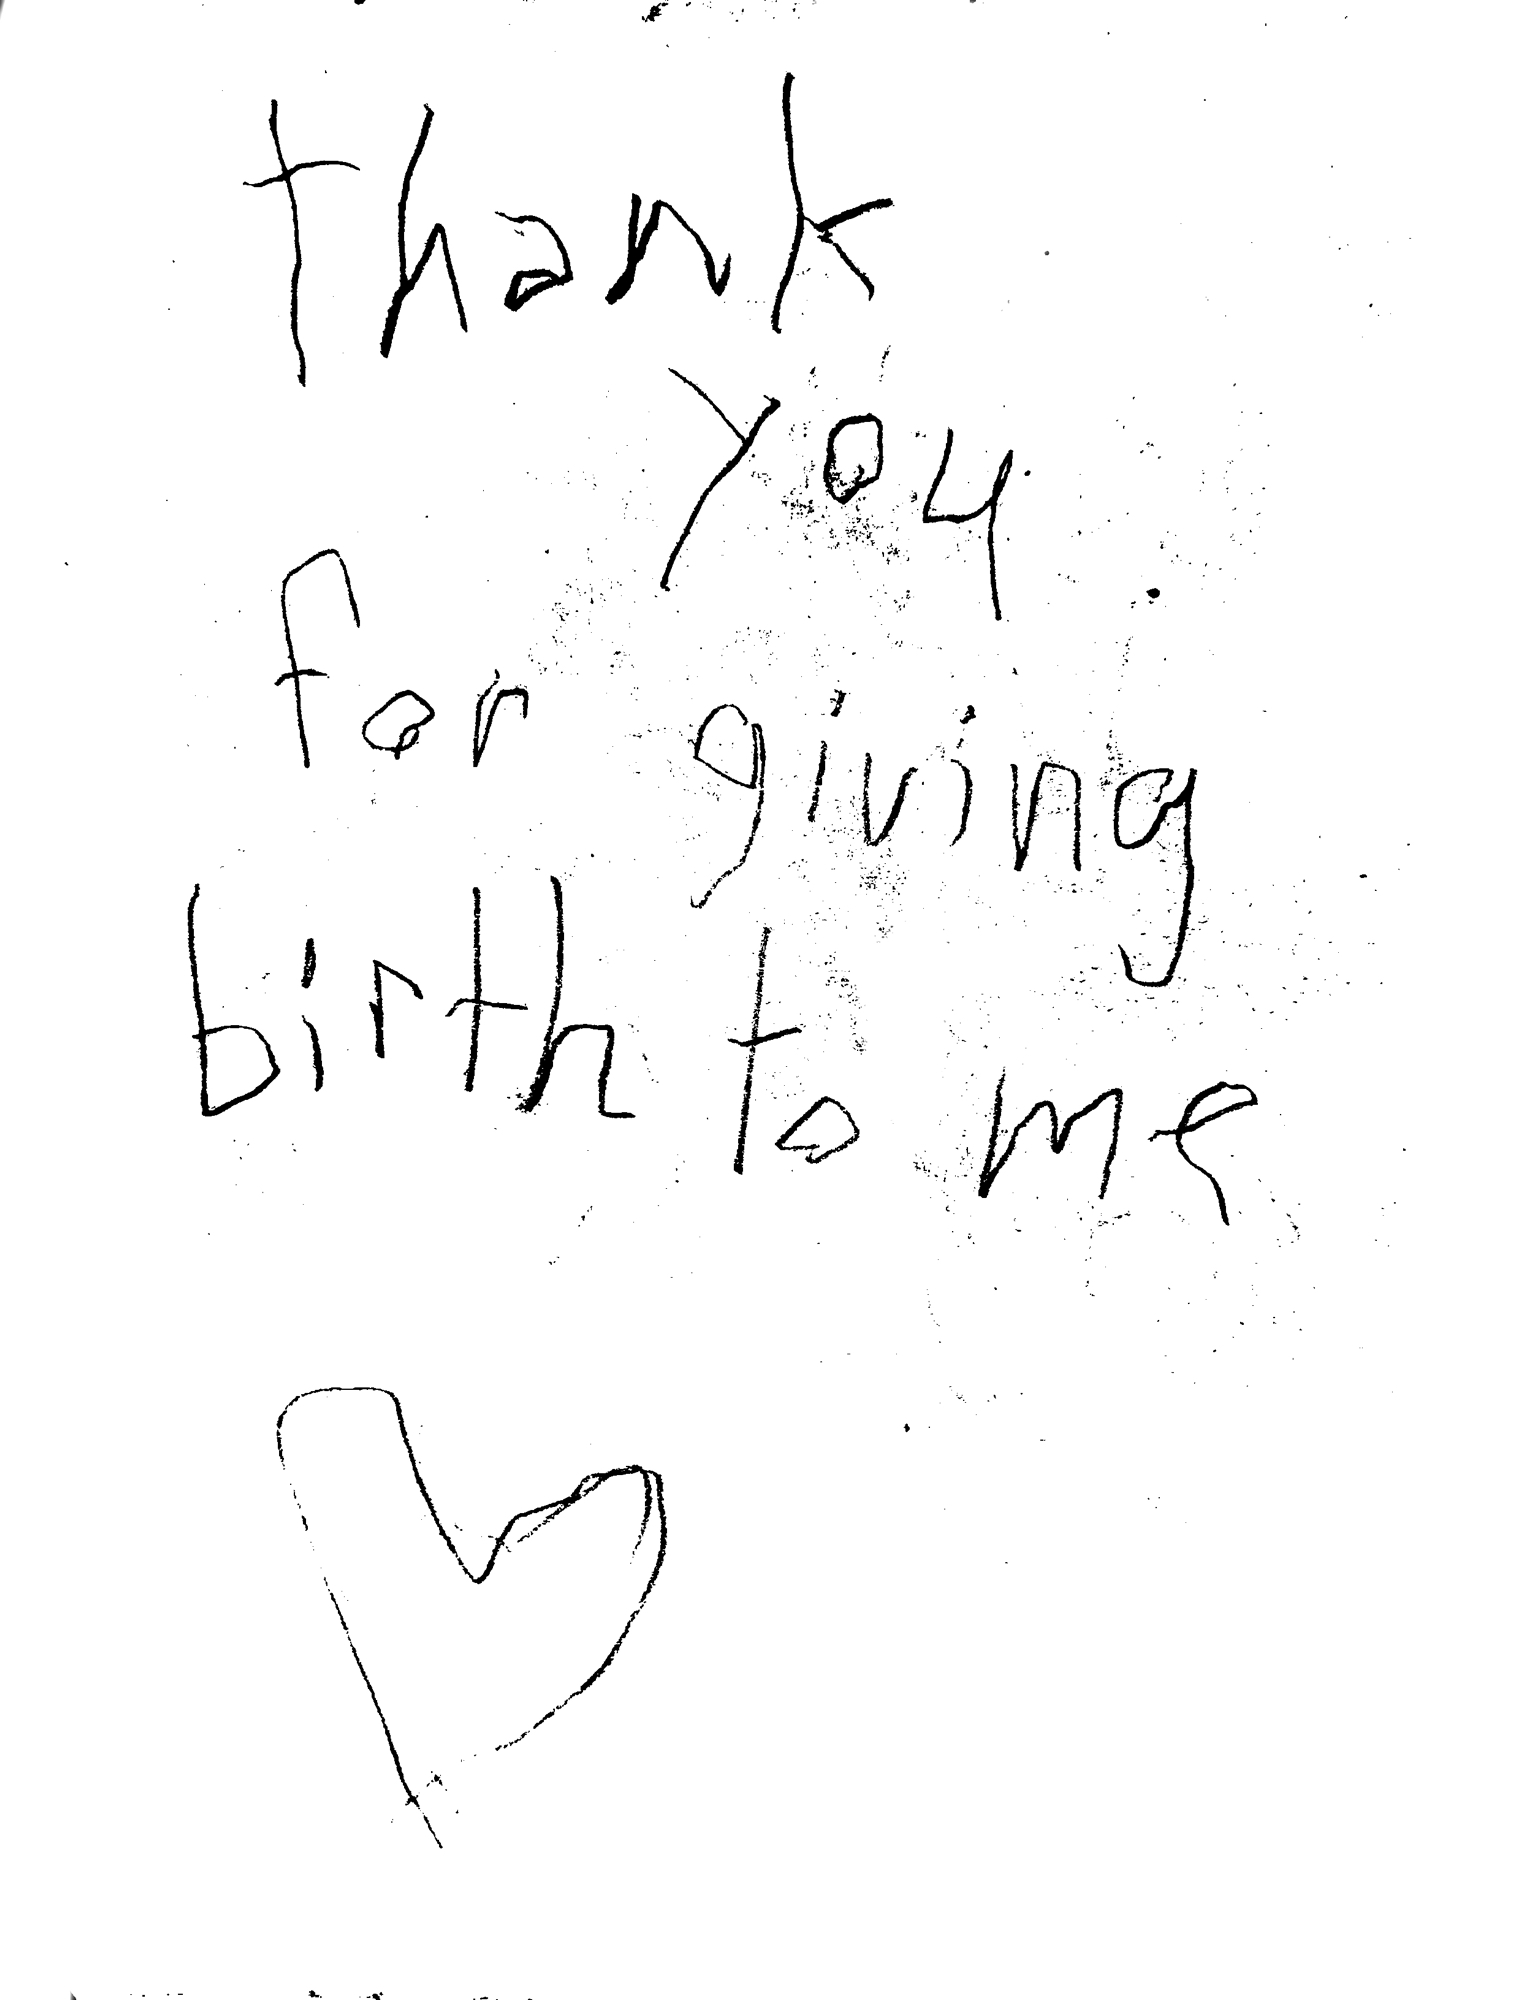 thank
you
for giving
birth to me